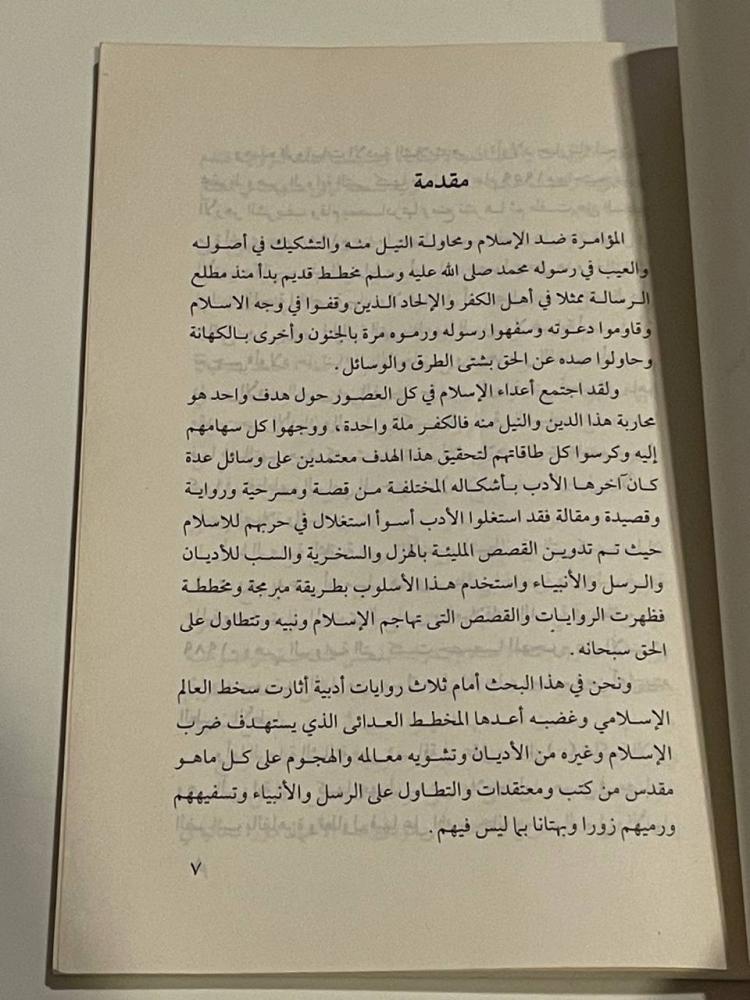 مقدمة
المؤامرة ضد الإسلام ومحاولة النيل منه والتشكيك في أصوله
والعيب في رسوله محمد صلى الله عليه وسلم مخطط قديم بدأ منذ مطلع
الرسالة ممثلا في أهل الكفر والإلحاد الذين وقفوا في وجه الاسلام
وقاوموا دعوته وسفهوا رسوله ورموه مرة بالجنون وأخرى بالكهانة
وحاولوا صده عن الحق بشتى الطرق والوسائل .
ولقد اجتمع أعداء الإسلام في كل العصور حول هدف واحد هو
محاربة هذا الدين والنيل منه فالكفر ملة واحدة، ووجهوا كل سهامهم
إليه وكرسوا كل طاقاتهم لتحقيق هذا الهدف معتمدين على وسائل عدة
كان آخرها الأدب بأشكاله المختلفة من قصة ومسرحية ورواية
وقصيدة ومقالة فقد استغلوا الأدب أسوأ استغلال في حربهم للاسلام
حيث تم تدوين القصص المليئة بالهزل والسخرية والسب للأديان
والرسل والأنبياء واستخدم هذا الأسلوب بطريقة مبرمجة ومخططة
فظهرت الروايات والقصص التى تهاجم الإسلام ونبيه وتتطاول على
الحق سبحانه .
ونحن في هذا البحث أمام ثلاث روايات أدبية أثارت سخط العالم
الإسلامي وغضبه أعدها المخطط العدائى الذي يستهدف ضرب
الإسلام وغيره من الأديان وتشويه معالمه والهجوم على كل ماهو
مقدس من كتب ومعتقدات والتطاول على الرسل والأنبياء وتسفيههم
ورميهم زورا وبهتانا بما ليس فيهم .
٧